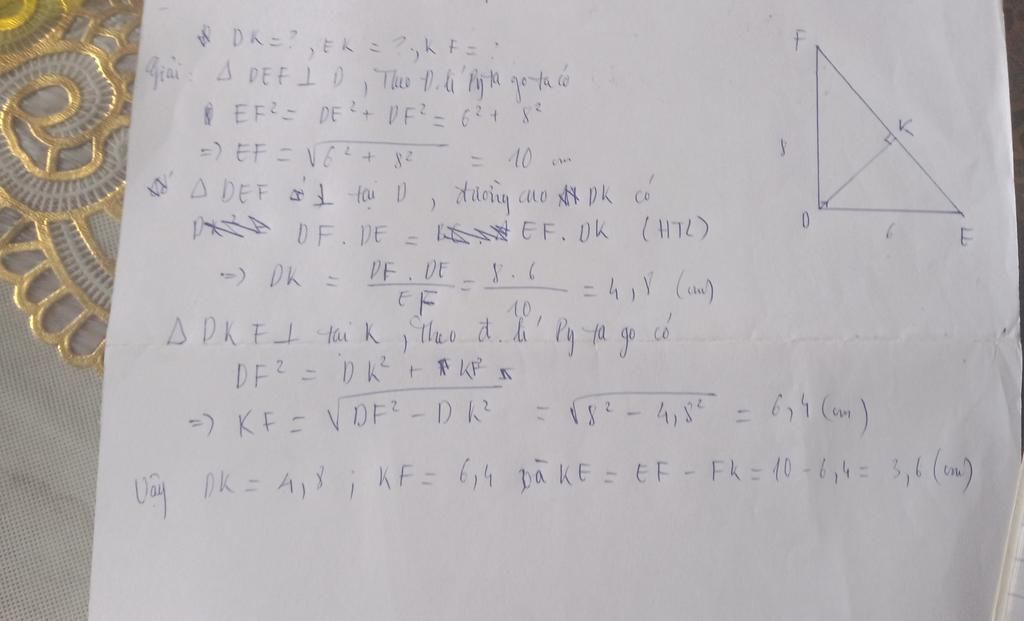 DK = ? , EK = ? , KF = ?
Giải: Δ DEF ⊥ D, Theo Đ. lí Pytago ta có
EF² = DE² + DF² = 6² + 8²
=> EF = √6² + 8² = 10 cm
Δ DEF ⊥ tại D , đường cao DK có
DF . DE = EF . DK (HTL)
=> DK = DF . DE / EF = 8 . 6 / 10 = 4,8 (cm)
Δ DKF ⊥ tại K , Theo đ. lí Pytago có
DF² = DK² + KF²
=> KF = √DF² - DK² = √8² - 4,8² = 6,4 (cm)
Vậy DK = 4,8 ; KF = 6,4 KE = EF - FK = 10 - 6,4 = 3,6 (cm)
F
K
8
D
6
E